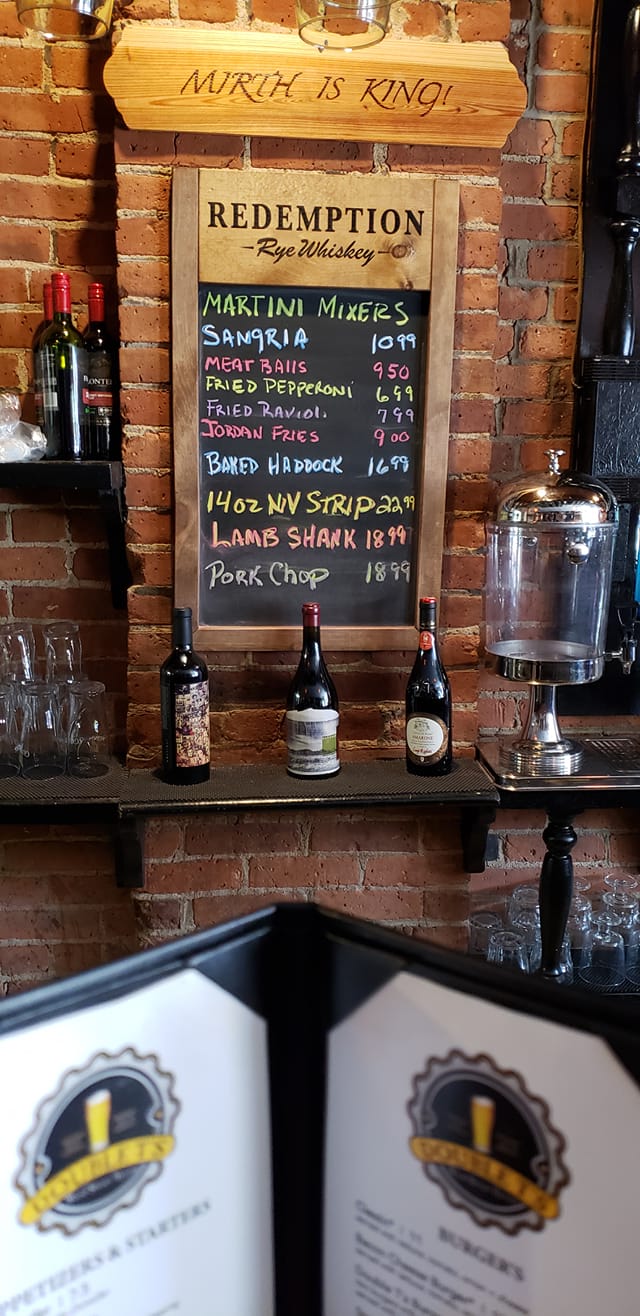 MIRTH IS KING!
REDEMPTION
Rye Whiskey
MARTINI MIXERS
SANGRIA 10 99
MEAT BAllS 9 50
FRIED PEPPERONI 6 99
FRIED RAVIOLI 7 99
JORDAN FRIES 9 00
BAKED HADDOCK 16 99
14oz NY STRIP 22 99
LAMB SHANK 18 99
PORK CHOP 18 99
AMARONE
DOUBLET'S
DOUBLET'S
APPETIZERS & STARTERS
BURGER'S